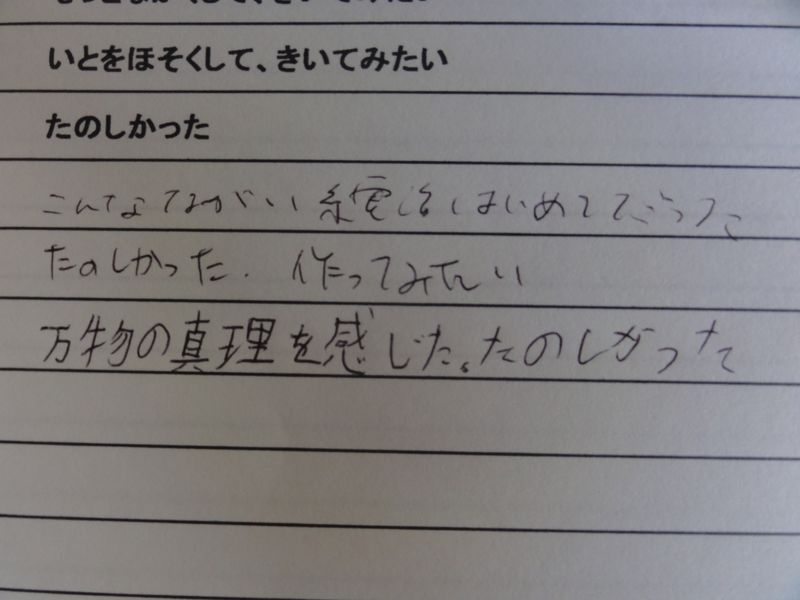 いとをほそくして、きいてみたい
たのしかった
こんなてながい糸電話はじめてだった
たのしかった. 作ってみたい
万物の真理を感じた。たのしかった